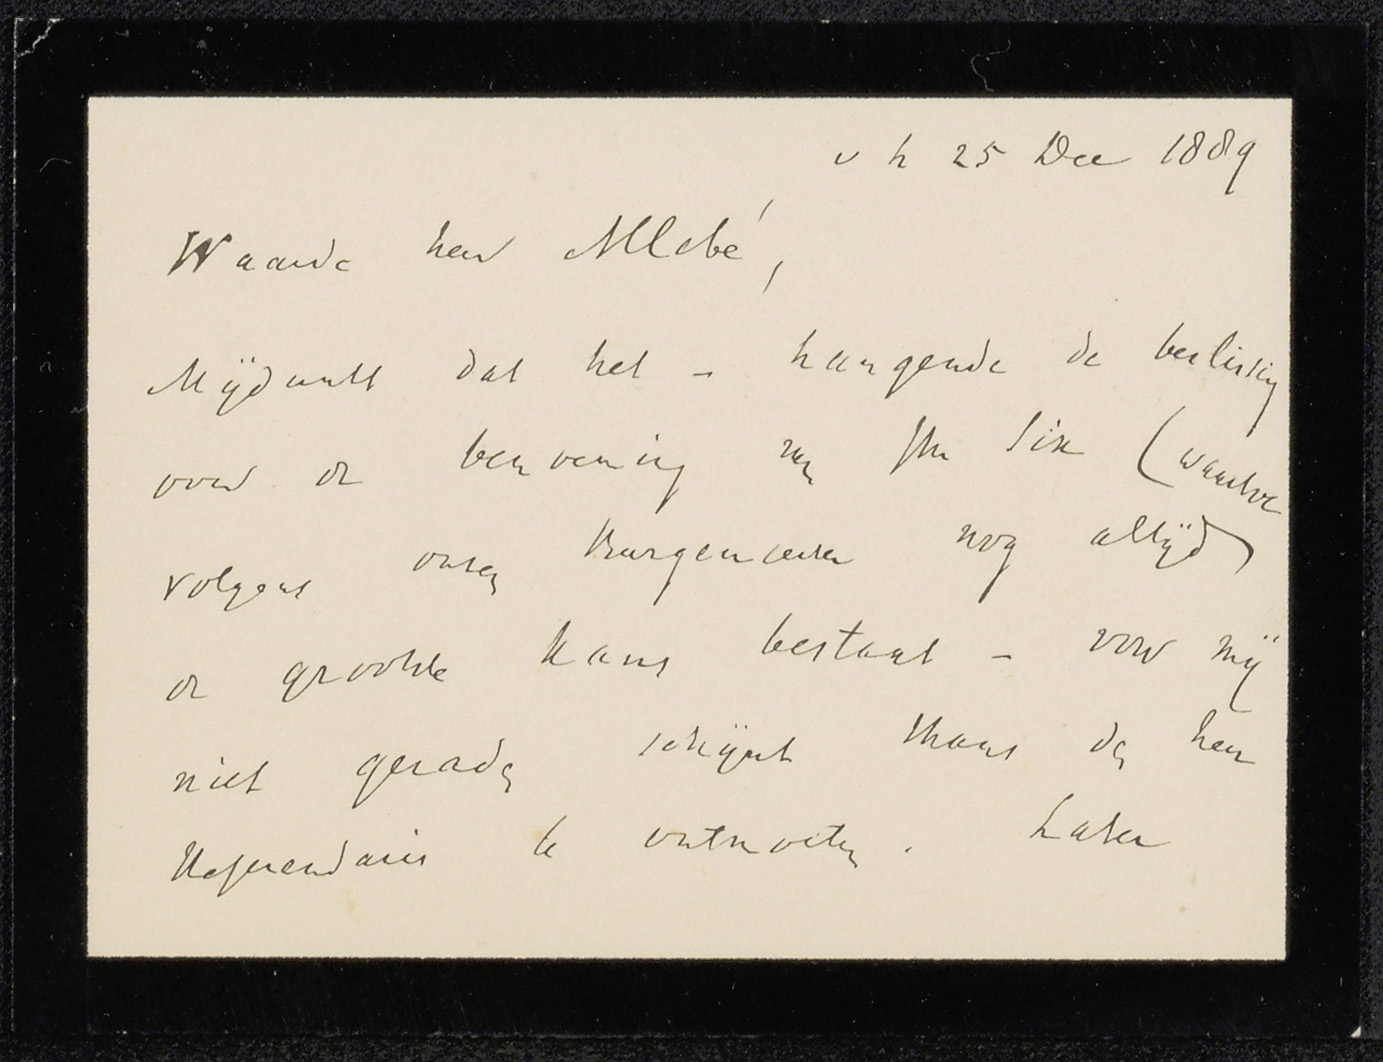 v h 25 Dec 1889
Waarde heer Allebé,
Mij dunkt dat het - hangende de beslissing
over de benoeming van Jhr Six (waartoe
volgens onzen Burgemeester nog altijd)
de grootste kans bestaat - voor mij
niet geraden schijnt thans den heer
Referendaris te ontmoeten. Later